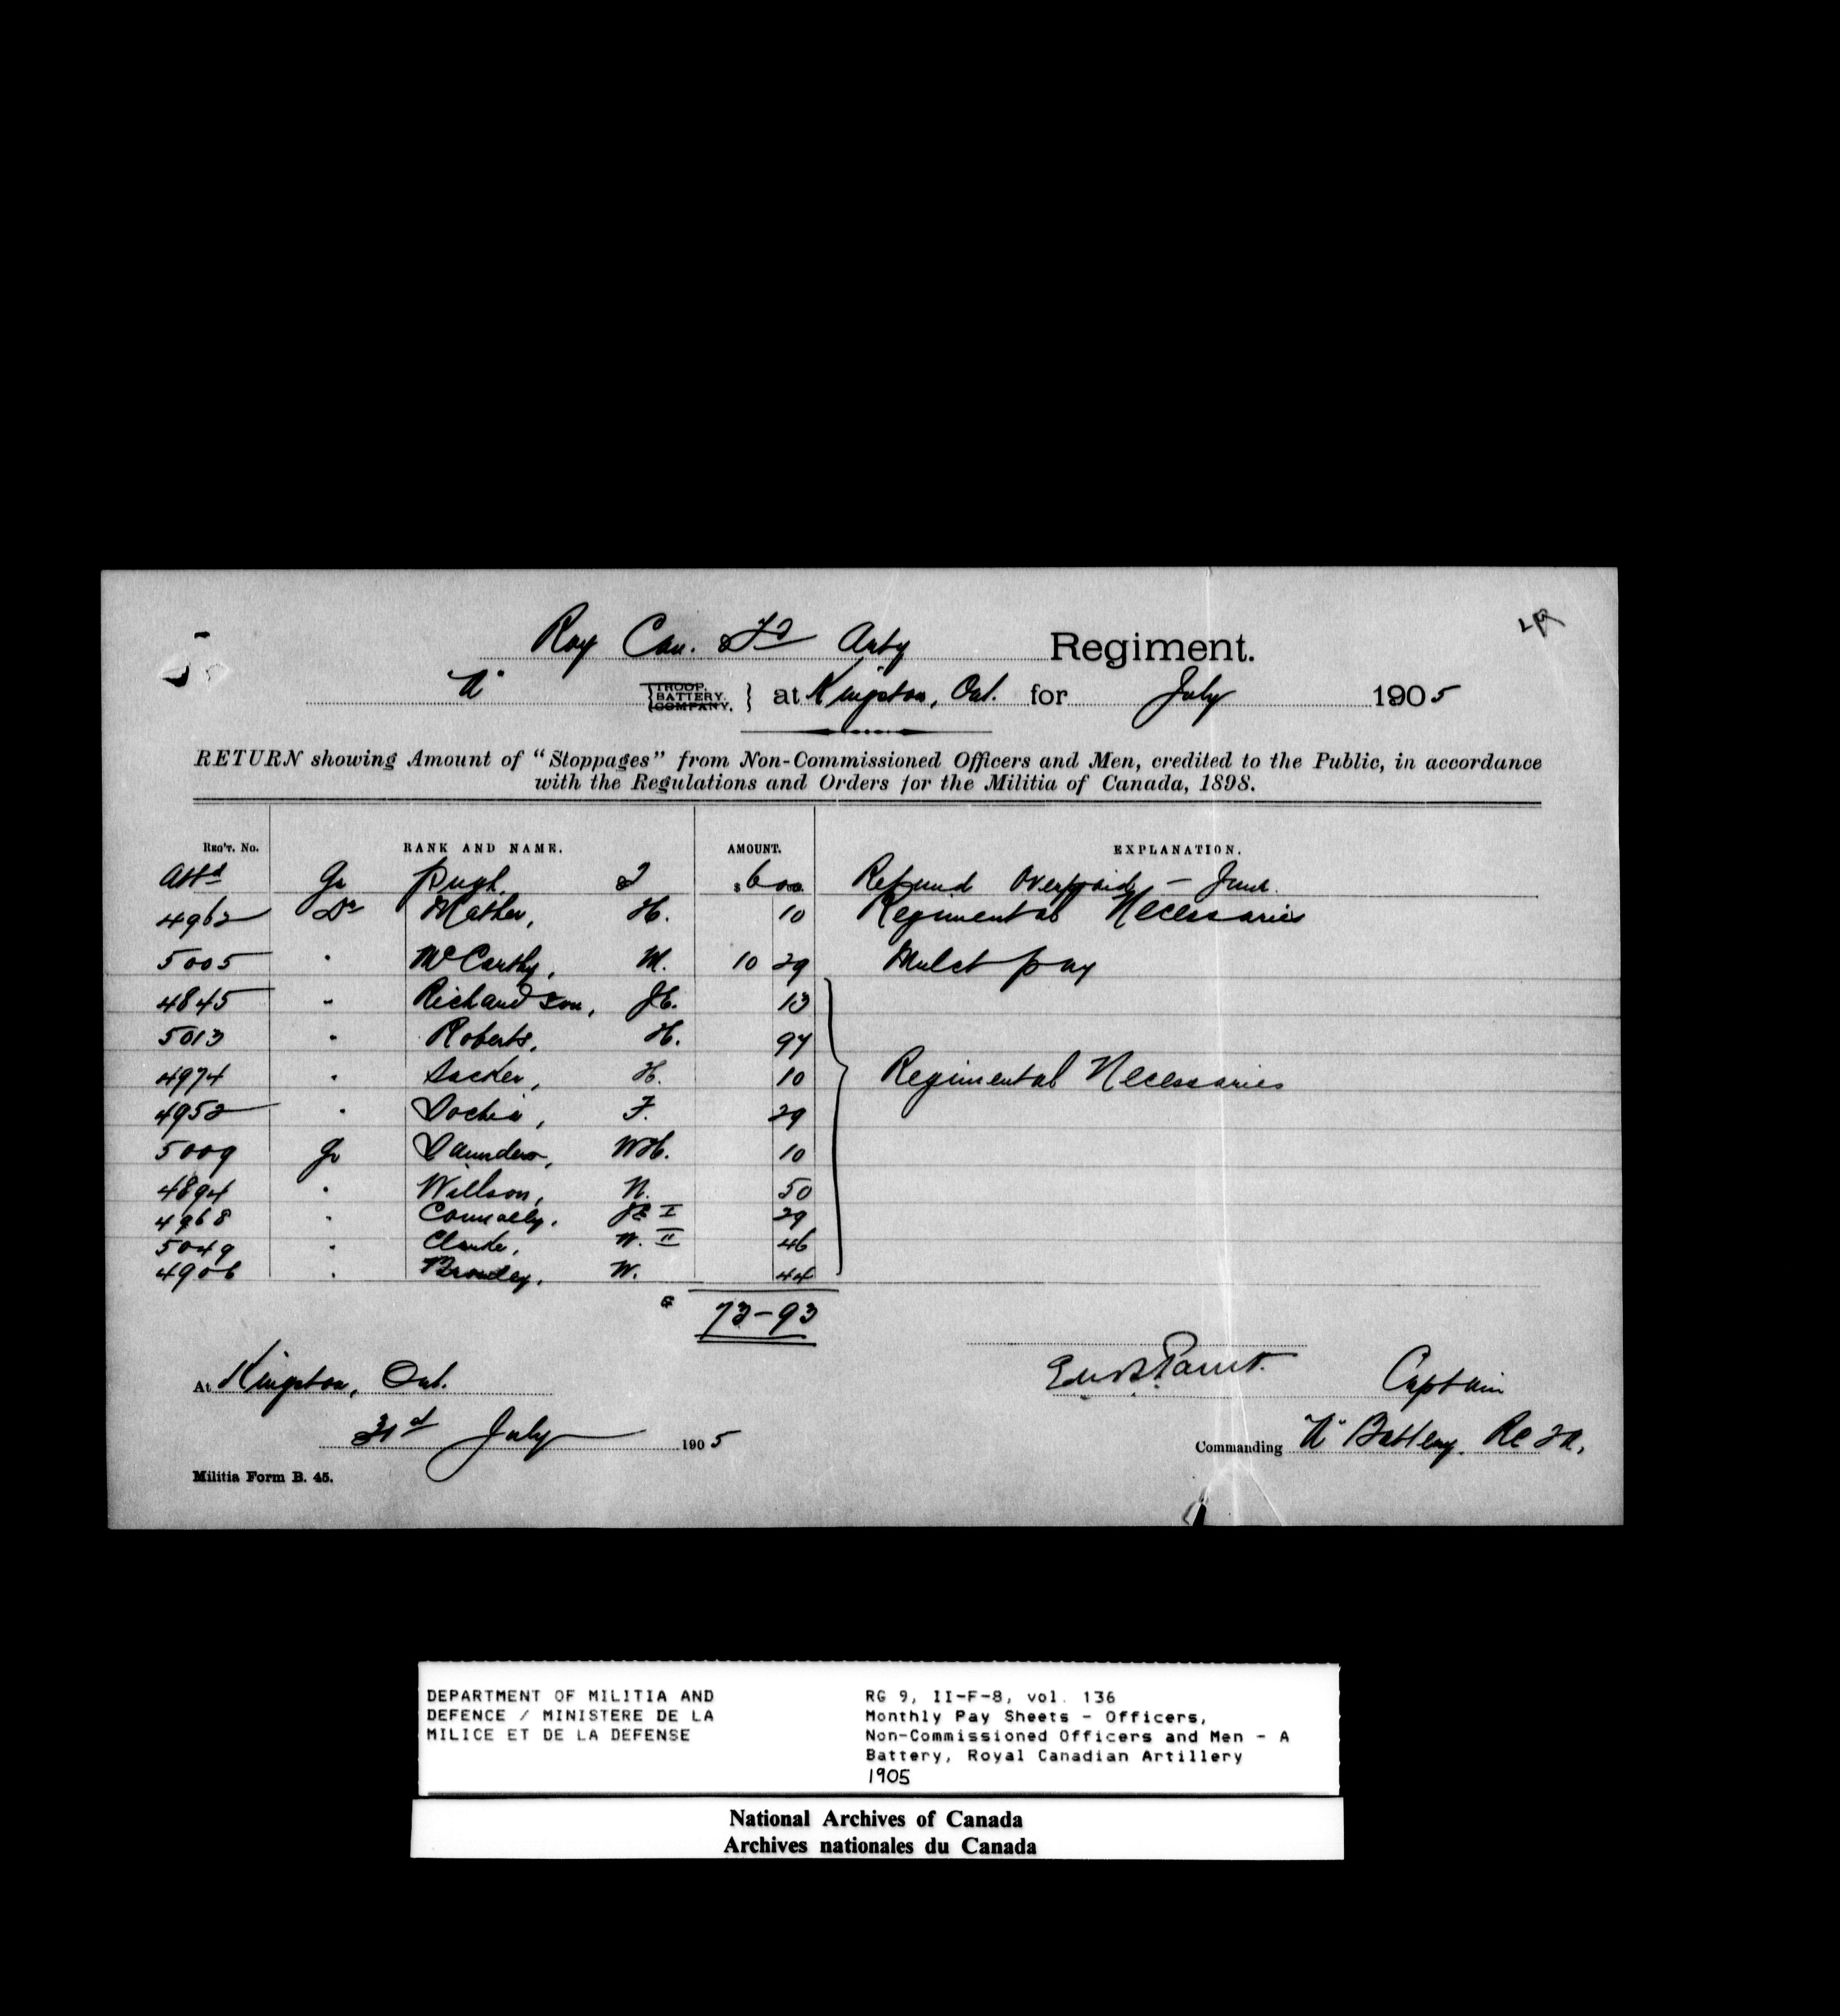 Roy Can. Fd Arty Regiment.
"A" {TROOP. BATTERY. COMPANY.} at Kingston, Ont. for July 1905
RETURN showing Amount of "Stoppages" from Non-Commissioned Officers and Men, credited to the Public, in accordance
with the Regulations and Orders for the Militia of Canada, 1898.
REG'T. No. RANK AND NAME. AMOUNT. EXPLANATION.
Attd Gr Pugh, $ 6 00 Refund Overpaid – June.
4962 Dr Mather, H. 10 Regimental Necessaries
5005 " McCarthy, M. 10 29 Mulct pay
4845 " Richardson, 13
5013 " Roberts, H. 97
4974 " H. 10 Regimental Necessaries
4952 " F. 29
5009 Gr Saunders, WH. 10
4894 " Willson, N. 50
4968 " Connolly, I 29
5049 " Clarke, W. II 46
4906 " W. 44
$ 73-93
At Kingston, Ont. Captain
31st July 1905 Commanding "A" Battery. RCFA.
Militia Form B. 45.
DEPARTMENT OF MILITIA AND
DEFENCE / MINISTERE DE LA
MILICE ET DE LA DEFENSE
RG 9, II-F-8, vol. 136
Monthly Pay Sheets - Officers,
Non-Commissioned Officers and Men - A
Battery, Royal Canadian Artillery
1905
National Archives of Canada
Archives nationales du Canada